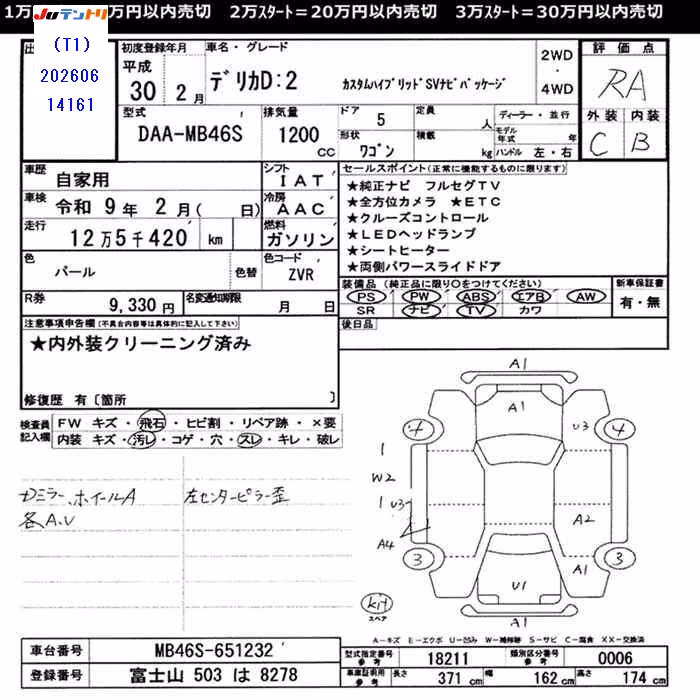 1万 円以内売切 2万スタート=20万円以内売切 3万スタート=30万円以内売切
JUテントリ
(T1)
202606
14161
初度登録年月
平成
30 2月
車名・グレード
デリカD:2 カスタムハイブリッドSVナビパッケージ
2WD
・
4WD
評価点
RA
外装 内装
C B
型式
DAA-MB46S
排気量
1200 cc
ドア 5
形状 ワゴン
定員 人
積載 kg
ディーラー・並行
モデル年式 年
ハンドル 左・右
車歴 自家用
車検 令和 9年 2月( 日)
走行 12万5千420 km
色 パール 色替
シフト IAT
冷房 AAC
燃料 ガソリン
色コード ZVR
R券 9,330円
名変通知期限 月 日
セールスポイント(正常に機能するものに限ります)
★純正ナビ フルセグTV
★全方位カメラ ★ETC
★クルーズコントロール
★LEDヘッドランプ
★シートヒーター
★両側パワースライドドア
装備品(純正品に限り○をつけてください)
PS PW ABS エアB AW
SR ナビ TV カワ
新車保証書
有・無
後日品
注意事項申告欄(不具合内容等は具体的に記入して下さい)
★内外装クリーニング済み
修復歴 有〔箇所 〕
検査員記入欄
FW キズ・飛石・ヒビ割・リペア跡・×要
内装 キズ・汚れ・コゲ・穴・スレ・キレ・破レ
ドミラー、ホイールA 左センターピラー歪
各A、U
A1
A1
4 4
U3
1
W2
1 U3
A2
A4
3 3
A1
U1
A1
kit
スペア
A-キズ E-エクボ U-凹み W-補修跡 S-サビ C-腐食 XX-交換済
車台番号 MB46S-651232
登録番号 富士山 503 は 8278
型式指定番号 参考 18211
類別区分番号 参考 0006
車庫証明用 参考 長さ 371 cm 幅 162 cm 高さ 174 cm